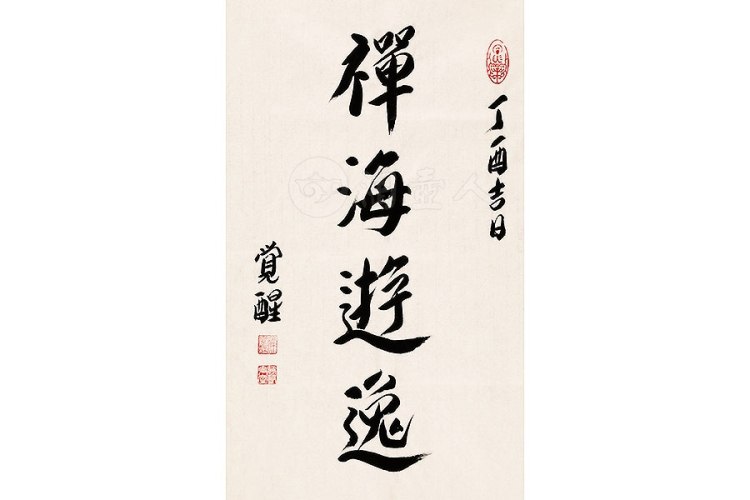 丁酉吉日
禪海遊逸
覺醒